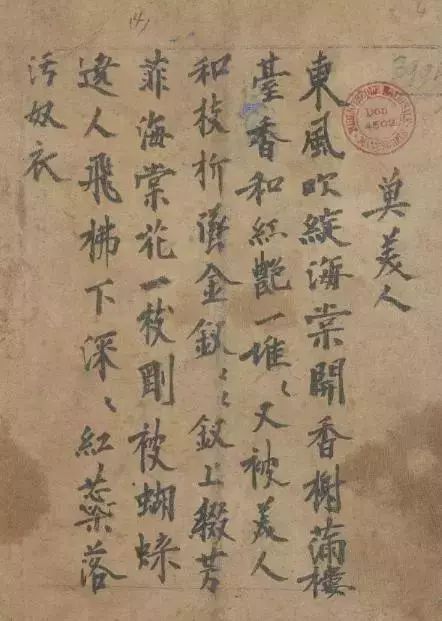 奠美人
東風吹綻海棠開香榭滿樓
臺香和紅艷一堆〻又被美人
和枝折墜金釵〻釵上綴芳
菲海棠花一枝剛被蝴蝶
遶人飛拂下深〻紅蘂落
污奴衣
(4)
DON
4502